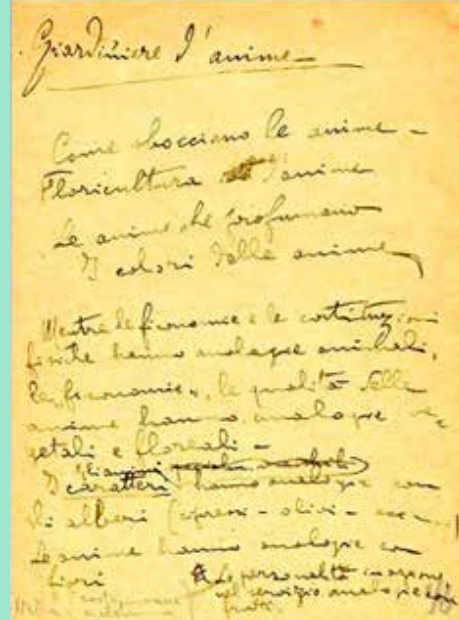 Giardiniere d'anime
Come sbocciano le anime -
Floricultura d'anime
Le anime che profumano
I colori delle anime
Mentre le fisonomie e le costituzioni
fisiche hanno analogie animali,
le "fisonomie", le qualità delle
anime hanno analogie ve-
getali e floreali -
I caratteri hanno analogie con
gli alberi (cipressi - olivi - ecc...
Le anime hanno analogie con
fiori
Le personalità in azione,
nel servizio analogie con
frutti.